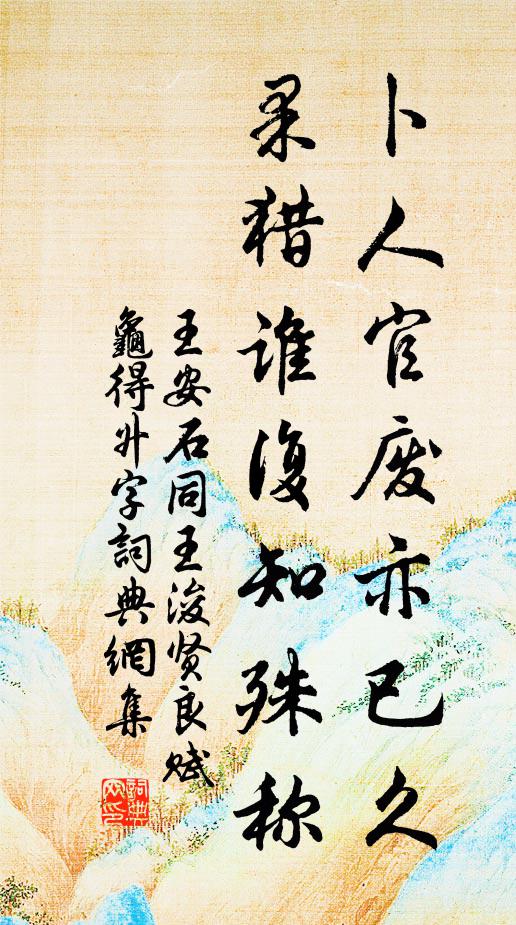 卜人官废亦已久
果猎谁復知殊称
王安石同王浚贤良赋
龜得升字詞典網集
詞典
网印